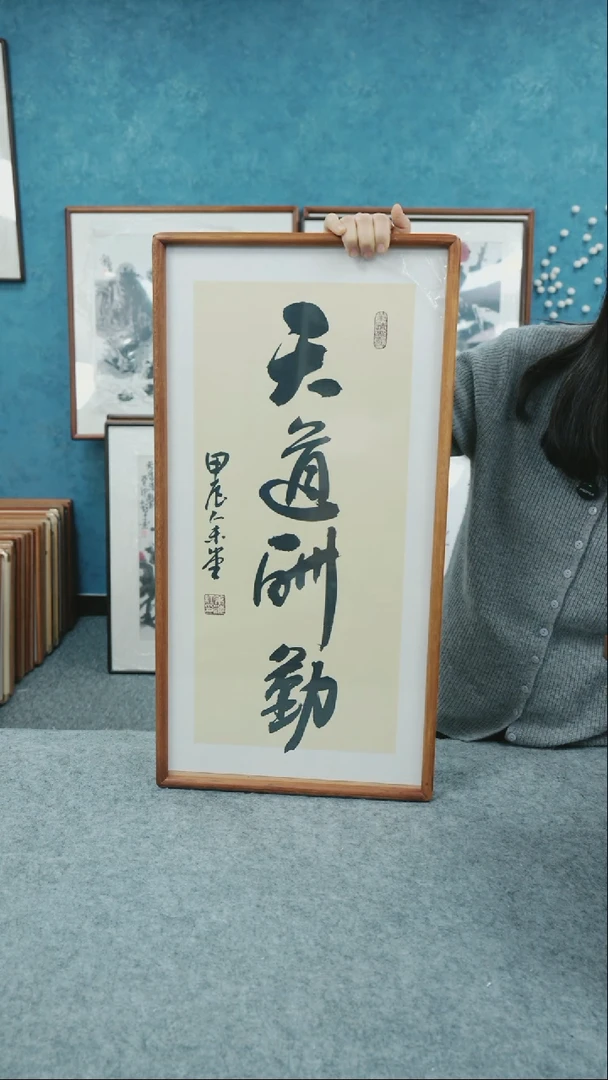 天道酬勤
甲辰仁禾堂